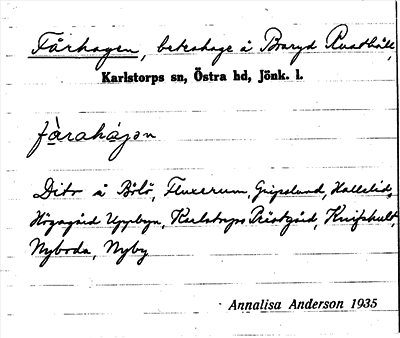 Fårhagen, beteshage å Baryd Rusthåll,
Karlstorps sn, Östra hd, Jönk. l.
fàrahágən
Dito å Bölö, Fluxerum, Gripslund, Hallelid,
Högagärd Uppbyn, Karlstorps Prästgård, Knifshult,
Nyboda, Nyby
Annalisa Anderson 1935